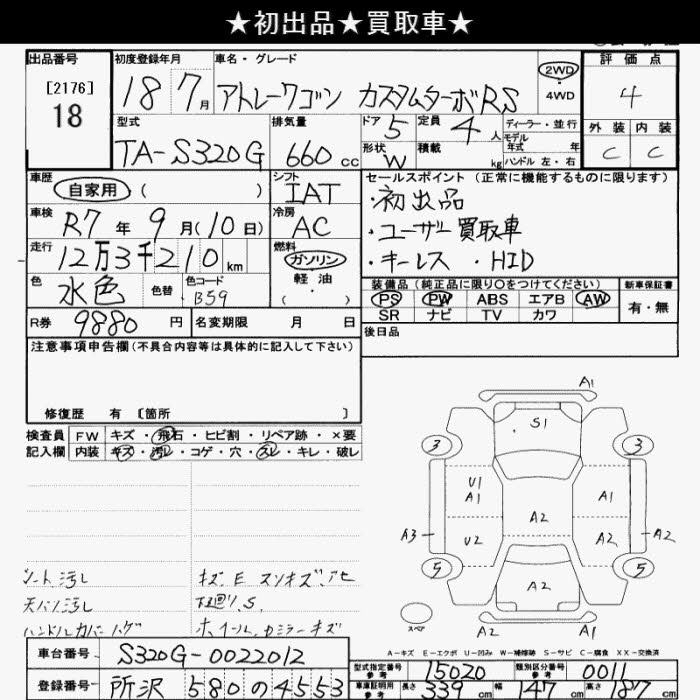 ★初出品★買取車★
出品番号
[2176]
18
初度登録年月
18 7月
車名・グレード
アトレーワゴン カスタムターボRS
2WD
・
4WD
評価点
4
外装 内装
C C
型式
TA-S320G
排気量
660 cc
ドア 5
定員 4人
形状 W
積載 kg
ディーラー・並行
モデル
年式 年
ハンドル 左・右
車歴
自家用 ( )
シフト
IAT
セールスポイント (正常に機能するものに限ります)
・初出品
・ユーザー買取車
・キーレス ・HID
車検
R7年9月(10日)
冷房
AC
走行
12万3千210km
燃料
ガソリン
・
軽油
( ・ )
色
水色
色替
色コード
B59
装備品 (純正品に限り〇をつけてください)
PS PW ABS エアB AW
SR ナビ TV カワ
新車保証書
有・無
R券 9880 円
名変期限 月 日
後日品
注意事項申告欄(不具合内容等は具体的に記入して下さい)
修復歴 有 〔箇所 〕
検査員
記入欄
FW キズ・飛石・ヒビ割・リペア跡・×要
内装 キズ・汚レ・コゲ・穴・スレ・キレ・破レ
シート汚し
天バン汚し
ハンドルカバーハゲ
キズ E スリキズ、アセ
下廻り、S.
ホイール、ミラーキズ
A1
S1
3 3
U1
A1
A1
A2
A3
U2
A2
A2
5 5
A2
スペア
A2 A1
A-キズ E-エクボ U-凹み W-補修跡 S-サビ C-腐食 XX-交換済
車台番号
S320G-0022012
登録番号
所沢 580 の 4553
型式指定番号
参考
15020
類別区分番号
参考
0011
車庫証明用
参考
長さ 339cm 幅 147cm 高さ 187cm